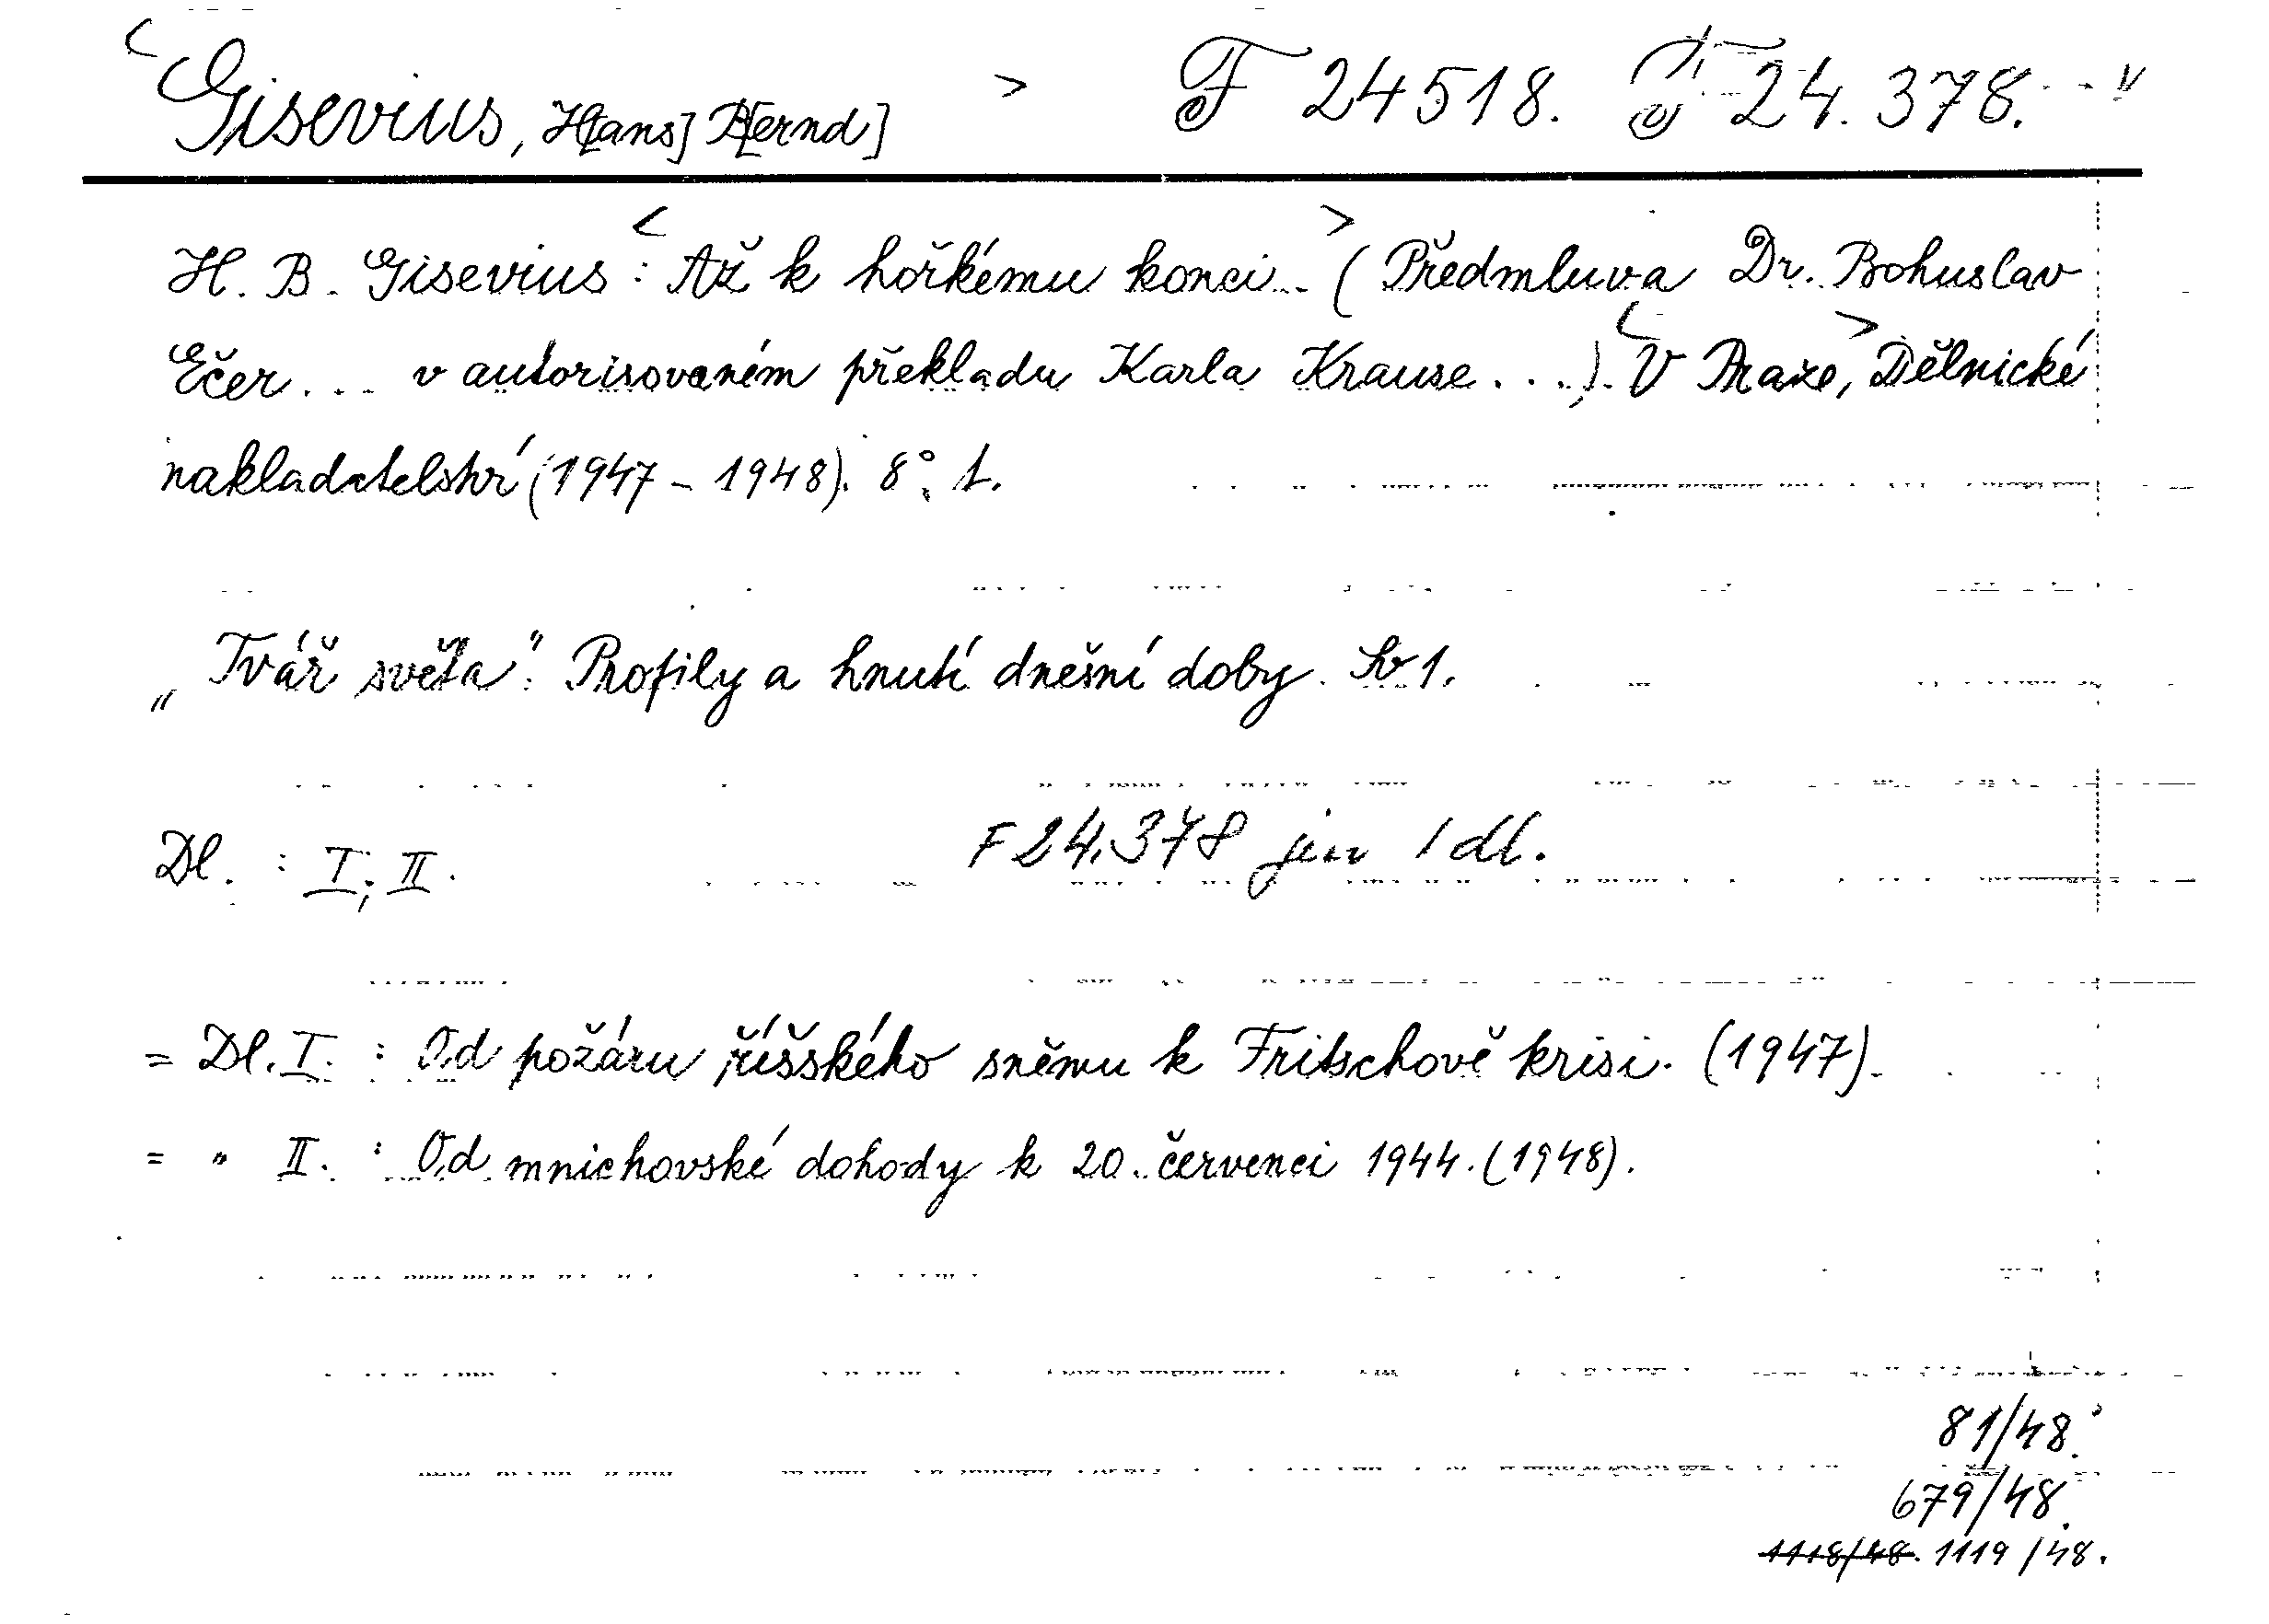 <Gisevius, H[ans] B[ernd] > F 24518. F 24.378.
H. B. Gisevius: <Až k hořkému konci...> (Předmluva Dr. Bohuslav
Ečer... v autorisovaném překladu Karla Krause...). <V Praze,> Dělnické
nakladatelství (1947 - 1948). 8°. 1.
„Tvář světa“. Profily a hnutí dnešní doby. Sv 1.
Dl. : I; II. F 24.378 jen 1 dl.
= Dl. I. : Od požáru říšského sněmu k Fritschově krisi. (1947).
= " II. : Od mnichovské dohody k 20. červenci 1944. (1948).
81/48.
679/48.
1118/48. 1119/48.